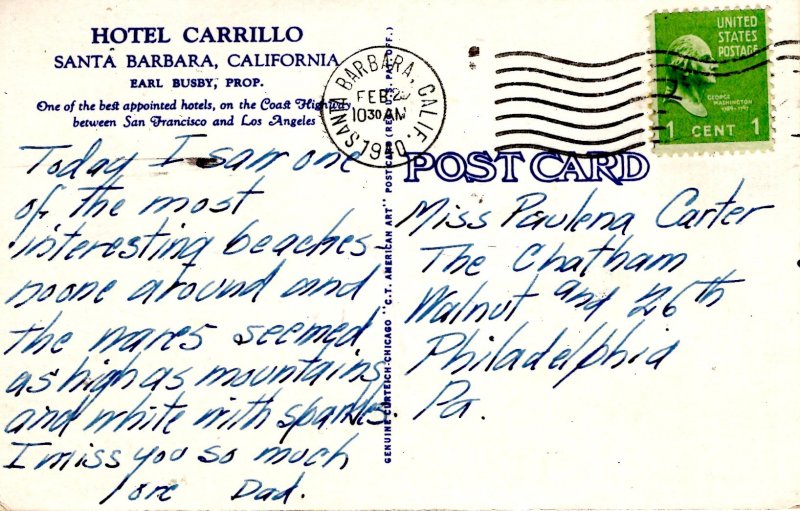 HOTEL CARRILLO
SANTA BARBARA, CALIFORNIA
EARL BUSBY, PROP.
One of the best appointed hotels, on the Coast Highway
between San Francisco and Los Angeles
Today I saw one
of the most
interesting beaches
noone around and
the waves seemed
as high as mountains
and white with sparkles.
I miss you so much
love Dad.
GENUINE CURTEICH-CHICAGO "C.T. AMERICAN ART" POSTCARD (REG. U.S. PAT. OFF.)
SANTA BARBARA, CALIF.
FEB 29
10 30 AM
1940
UNITED
STATES
POSTAGE
GEORGE
WASHINGTON
1789-1797
1 CENT 1
POST CARD
Miss Paulena Carter
The Chatham
Walnut and 26th
Philadelphia
Pa.